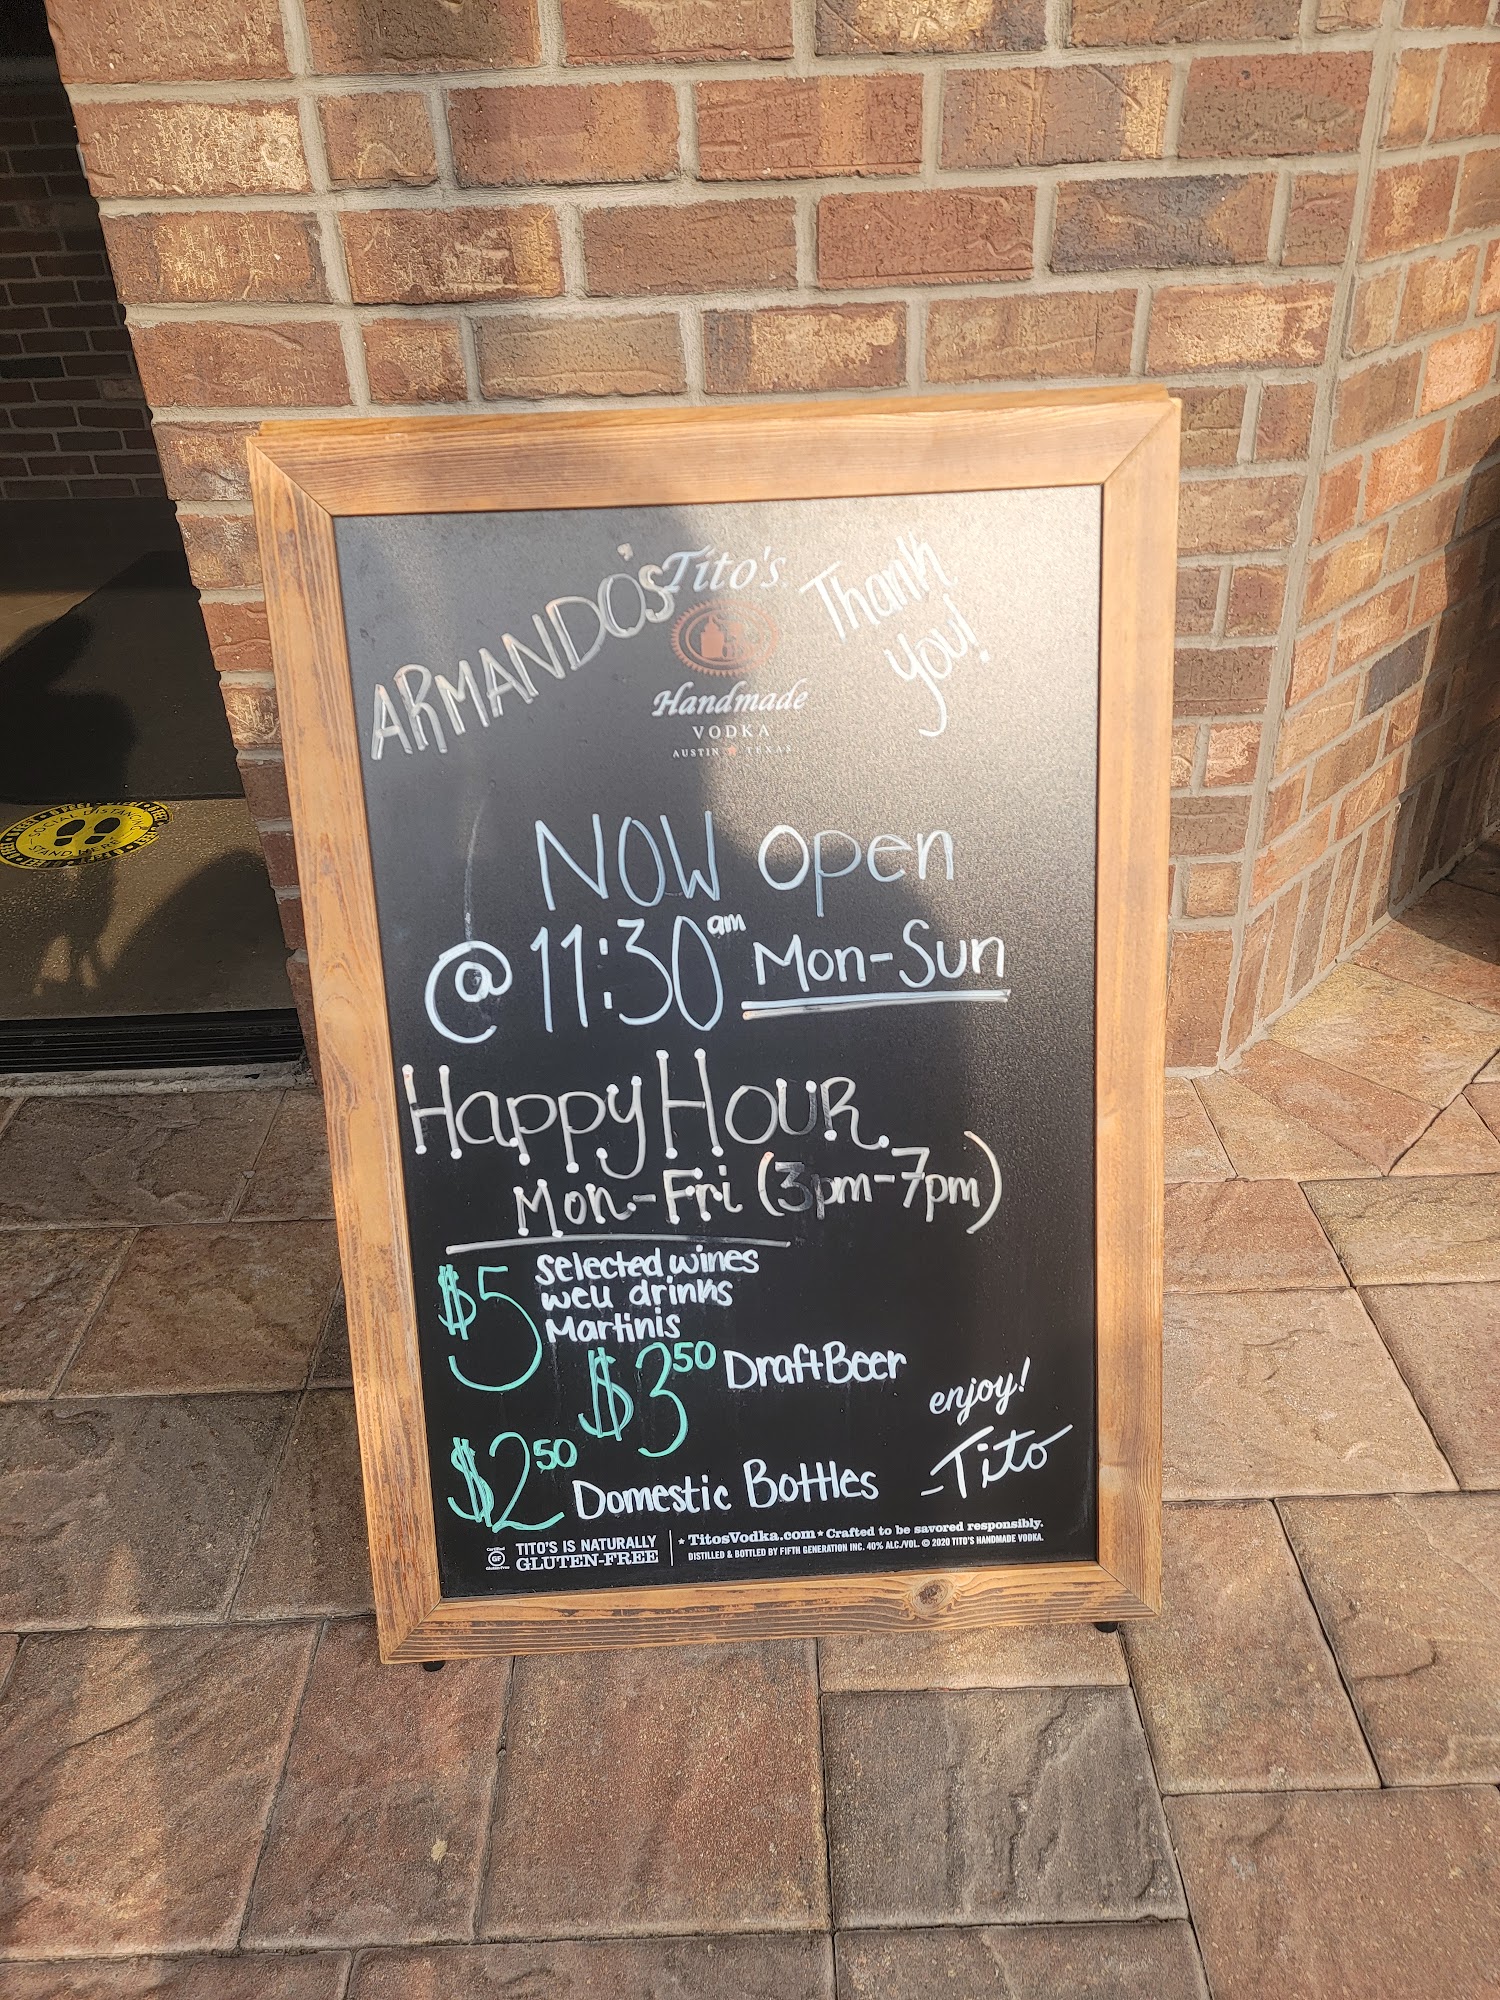 ARMANDO'S
Tito's
Handmade
VODKA
AUSTIN ★ TEXAS
Thank
you!
NOW open
@ 11:30 am Mon-Sun
Happy Hour
Mon-Fri (3pm-7pm)
$5 selected wines
well drinks
Martinis
$3 50 Draft Beer
$2 50 Domestic Bottles
enjoy!
-Tito
Certified
GF
Gluten-Free
TITO'S IS NATURALLY
GLUTEN-FREE
★ TitosVodka.com ★ Crafted to be savored responsibly.
DISTILLED & BOTTLED BY FIFTH GENERATION INC. 40% ALC./VOL. © 2020 TITO'S HANDMADE VODKA.
SOCIAL DISTANCING
STAND HERE
6 FEET